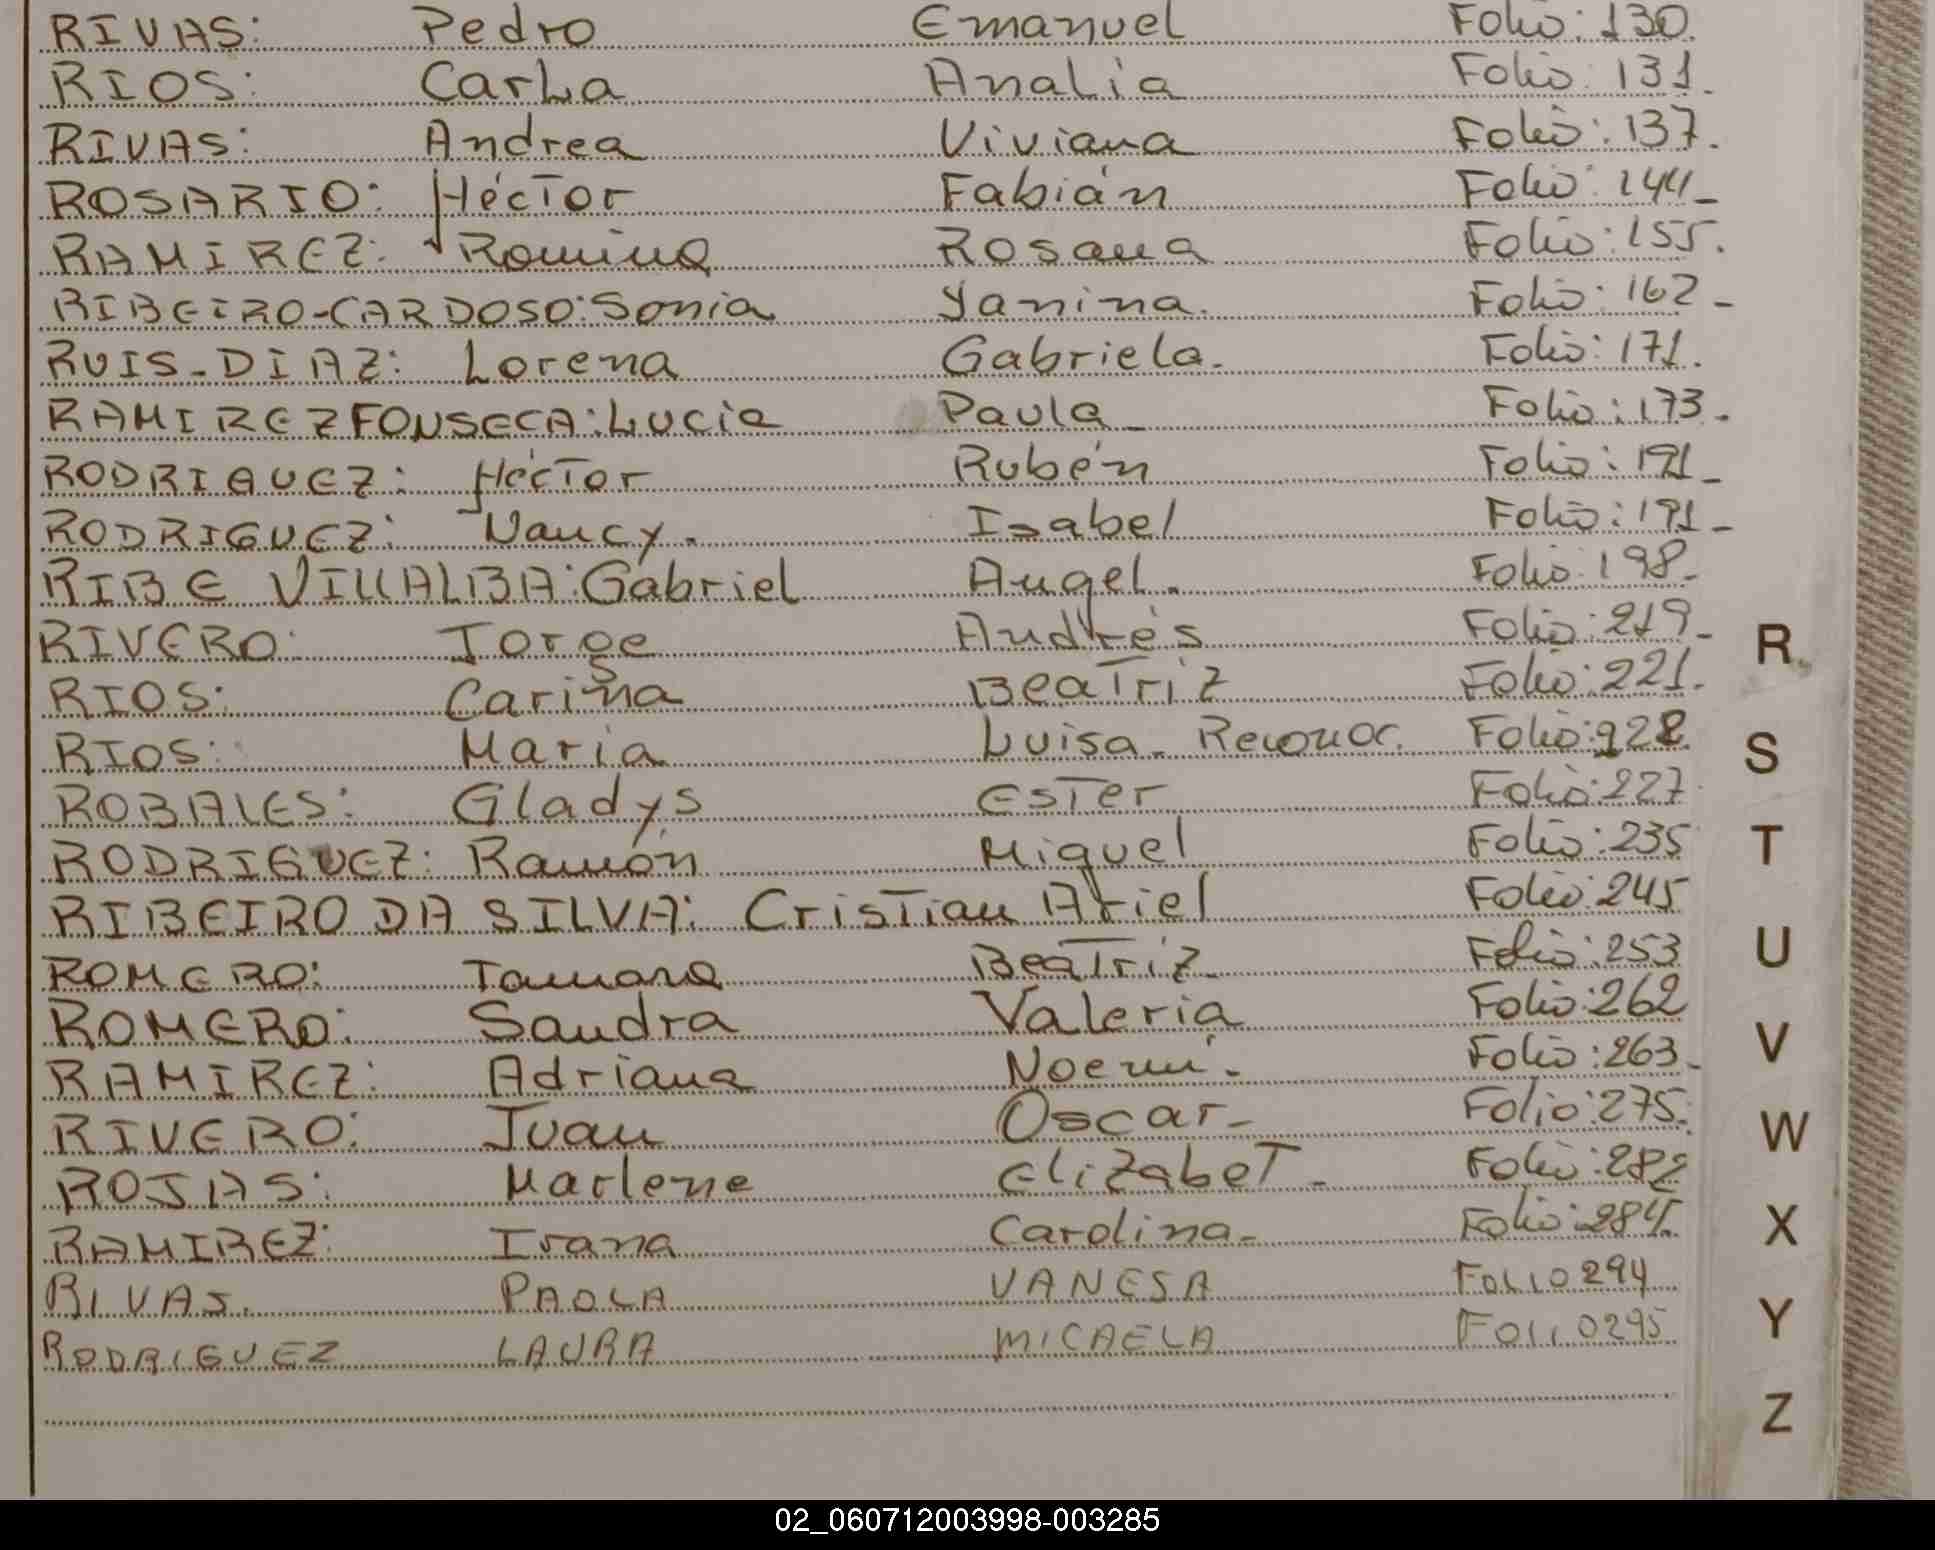 RIVAS: Pedro Emanuel Folio: 130.
RIOS: Carla Analia Folio: 131.
RIVAS: Andrea Viviana Folio: 137.
ROSARIO: Héctor Fabián Folio: 144_
RAMIREZ: Romina Rosana Folio: 155.
RIBEIRO-CARDOSO: Sonia Yanina. Folio: 162-
RUIS-DIAZ: Lorena Gabriela. Folio: 171.
RAMIREZ FONSECA: Lucia Paula_ Folio: 173.
RODRIGUEZ: Héctor Rubén Folio: 191_
RODRIGUEZ: Nancy. Isabel Folio: 191_
RIBE VILLALBA: Gabriel Angel. Folio: 198_
RIVERO: Jorge Andrés Folio: 219_
RIOS: Carina Beatriz Folio: 221.
RIOS: Maria Luisa. Reconoc. Folio: 222
ROBALES: Gladys Ester Folio: 227
RODRIGUEZ: Ramón Miguel Folio: 235
RIBEIRO DA SILVA: Cristian Ariel Folio: 245
ROMERO: Tamara Beatriz. Folio: 253
ROMERO: Sandra Valeria Folio: 262
RAMIREZ: Adriana Noemí. Folio: 263_
RIVERO: Juan Oscar_ Folio: 275.
ROJAS: Marlene Elizabet_ Folio: 282
RAMIREZ: Ivana Carolina_ Folio: 284.
RIVAS. PAOLA VANESA FOLIO 294
RODRIGUEZ LAURA MICAELA FOLIO 295
R
S
T
U
V
W
X
Y
Z
02_060712003998-003285